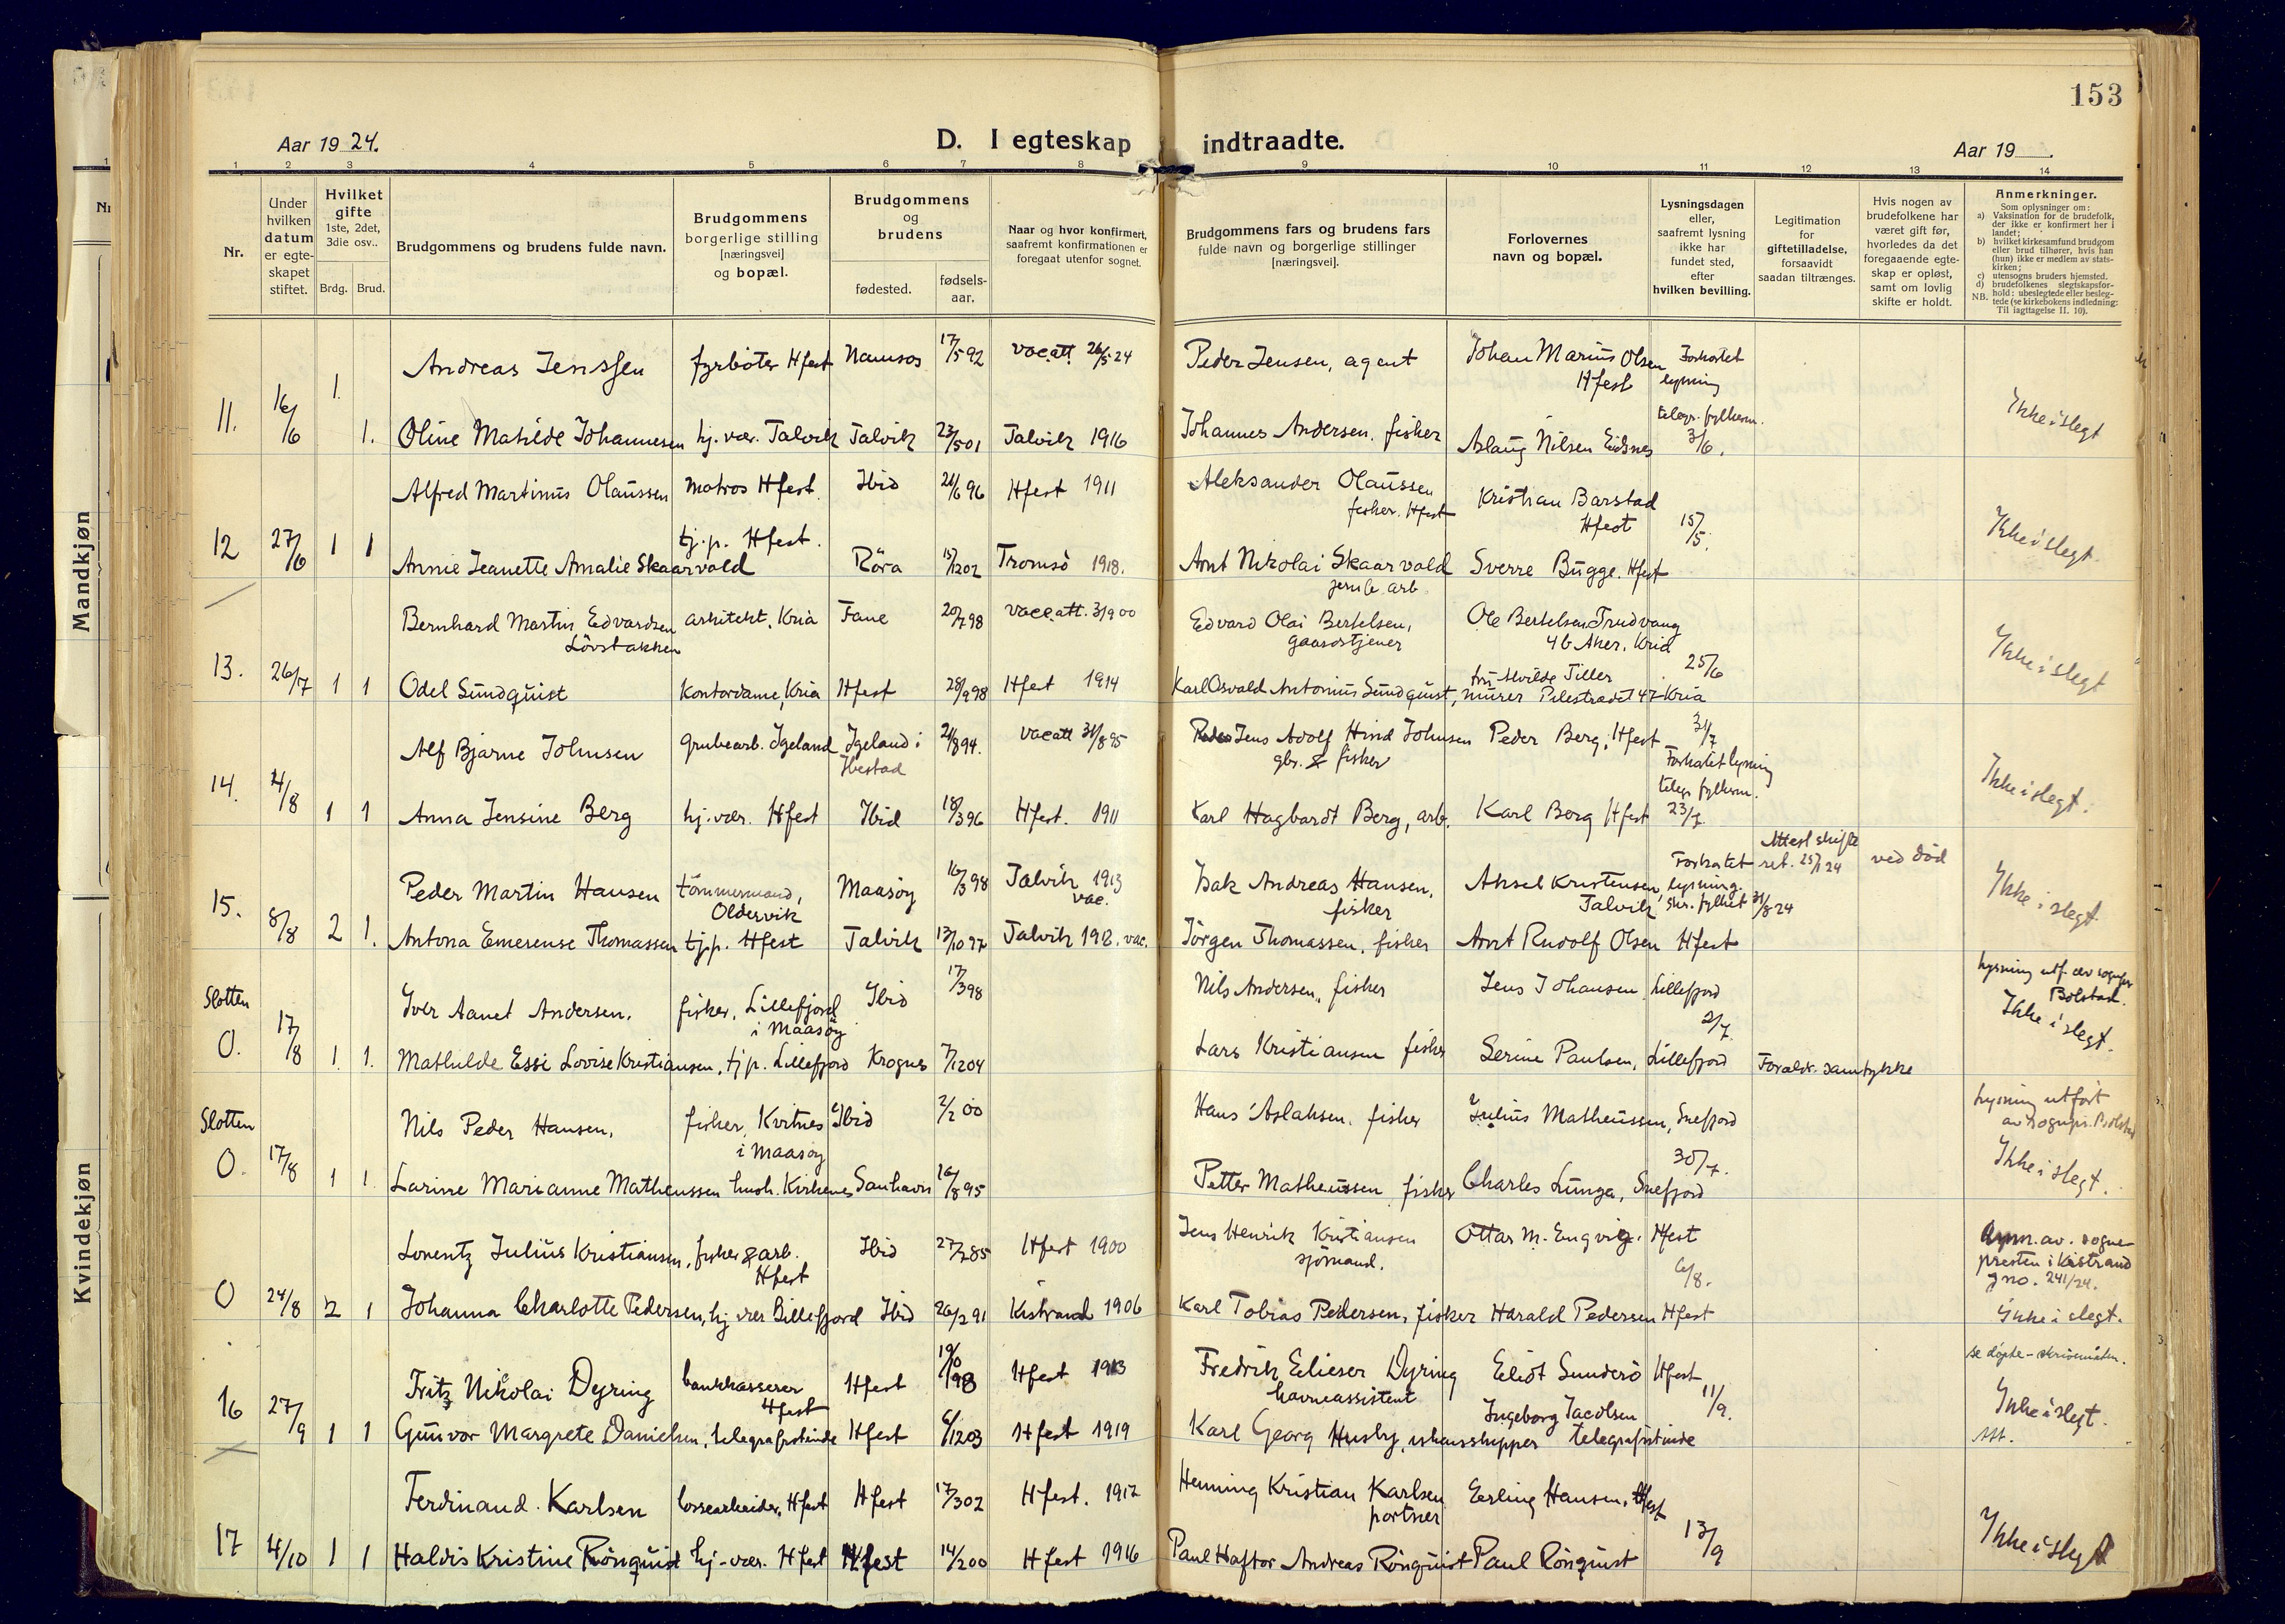 153
Aar 1924.
D. I egteskap indtraadte.
Aar 19
1 2 3 4 5 6 7 8 9 10 11 12 13 14
Nr.
Under hvilken datum er egte-skapet stiftet.
Hvilket gifte 1ste, 2det, 3die osv..
Brdg. Brud.
Brudgommens og brudens fulde navn.
Brudgommens borgerlige stilling [næringsvei] og bopæl.
Brudgommens og brudens
fødested.
fødsels-aar.
Naar og hvor konfirmert, saafremt konfirmationen er foregaat utenfor sognet.
Brudgommens fars og brudens fars fulde navn og borgerlige stillinger [næringsvei].
Forlovernes navn og bopæl.
Lysningsdagen eller, saafremt lysning ikke har fundet sted, efter hvilken bevilling.
Legitimation for giftetilladelse, forsaavidt saadan tiltrænges.
Hvis nogen av brudefolkene har været gift før, hvorledes da det foregaaende egte-skap er opløst, samt om lovlig skifte er holdt.
Anmerkninger.
Som oplysninger om:
a) Vaksination for de brudefolk, der ikke er konfirmert her i landet;
b) hvilket kirkesamfund brudgom eller brud tilhører, hvis han (hun) ikke er medlem av stats-kirken;
c) utensogns bruders hjemsted.
d) brudefolkenes slegtskapsfor-hold: ubeslegtede eller besleg-tede (se kirkebokens indledning: Til iagttagelse II. 10).
NB.
Mandkjøn
Kvindekjøn
11. 16/6
1. Andreas Jenssen fyrbøter Hfest Namsos 17/5 92 vac.att. 26/5 24 Peder Jensen, agent Johan Marius Olsen Hfest Forkortet lysning
1. Oline Matilde Johannesen hj. vær. Talvik Talvik 23/5 01 Talvik 1916 Johannes Andersen, fisker Aslaug Nilsen Eidsnes telegr. fylkesm. 3/6. Ikke i slegt
12 27/6 1 1
Alfred Martinus Olaussen matros Hfest. Ibid 21/6 96 Hfest 1911 Aleksander Olaussen fisker. Hfest Kristian Barstad Hfest 15/5.
Annie Jeanette Amalie Skaarvold tj.p. Hfest. Röra 15/12 02 Tromsö 1918. Arnt Nikolai Skaarvold jernb. arb. Sverre Bugge. Hfest Ikke i slegt.
13. 26/7 1 1
Bernhard Martin Edvardsen Lövstakken arkitekt. Kria Fane 20/7 98 vac.att. 3/9 00 Edvard Olai Bertelsen, gaardstjener Ole Bertelsen Trudvang 4b Aker. Kria 25/6
Odel Sundquist Kontordame, Kria Hfest 28/9 98 Hfest 1914 Karl Osvald Antonius Sundquist, murer fru Alvilde Tiller Pilestrædet 47 Kria Ikke i slegt
14. 4/8 1 1
Alf Bjarne Johnsen grubearb. Igeland Igeland i Ibestad 21/8 94. vac.att 31/8 95 Jens Adolf Hind Johnsen gbr. & fisker Peder Berg, Hfest 31/7 Forkortet lysning
Anna Jensine Berg hj. vær. Hfest Ibid 18/3 96 Hfest. 1911 Karl Hagbardt Berg, arb. Karl Berg Hfest telegr fylkesm. 23/7 Ikke i slegt.
15. 8/8 2 1.
Peder Martin Hansen tømmermand, Oldervik Maasøy 16/3 98 Talvik 1913 vac. Isak Andreas Hansen, fisker Aksel Kristensen, Talvik Forkortet lysning. skr. fylket 31/8 24 Attest skifte ret. 25/1 24 ved død
Antona Emerense Thomassen tj.p. Hfest Talvik 13/10 97 Talvik 1912. vac. Jörgen Thomassen, fisker Arnt Rudolf Olsen Hfest Ikke i slegt.
Slotten
O. 17/8 1. 1.
Iver Aanet Andersen. fisker, Lillefjord i Maasøy Ibid 17/3 98 Nils Andersen, fisker Jens Johansen, Lillefjord 2/7 Lysning utf. av sognepr Bolstad.
Mathilde Essi Lovise Kristiansen, tj p. Lillefjord Krognes 7/12 04 Lars Kristiansen fisker Serine Paulsen, Lillefjord Forældr. samtykke Ikke i slegt.
Slotten
O. 17/8 1 1
Nils Peder Hansen. fisker, Kvitnes i Maasøy Ibid 2/2 00 Hans Aslaksen. fisker Julius Matheussen, Snefjord 30/7. Lysning utført av sognepr. Bolstad
Larine Marianne Matheussen hush. Kirkenes Sanhavn 16/8 95 Petter Matheussen fisker Charles Lunga, Snefjord Ikke i slegt.
O 24/8 2 1
Lorentz Julius Kristiansen, fisker & arb. Hfest Ibid 27/2 85 Hfest 1900 Jens Henrik Kristiansen sjømand. Ottar M. Engvig. Hfest 6/8. Lysn. av. sogne-presten i Kistrand jno. 241/24.
Johanna Charlotte Pedersen, hj vær Billefjord Ibid 26/2 91 Kistrand 1906 Karl Tobias Pedersen, fisker Harald Pedersen Hfest Ikke i slegt.
16 27/9 1 1
Fritz Nikolai Dyring bankkasserer Hfest Hfest 19/10 98 Hfest 1913 Fredrik Elieser Dyring havneassistent Eliot Sunderö Hfest 11/9. se døpte-
Gunvor Margrete Danielsen, telegrafistinde Hfest 6/12 03 Hfest 1919 Karl Georg Husby, ishavsskipper Ingeborg Jacobsen telegrafistinde Ikke i slegt. Att.
17 4/10 1 1
Ferdinand Karlsen lossearbeider, Hfest Hfest 17/3 02 Hfest. 1917 Henning Kristian Karlsen portner Erling Hansen, Hfest 13/9
Haldis Kristine Rönquist hj-vær. Hfest Hfest 14/2 00 Hfest 1916 Paul Haftor Andreas Rönquist Paul Rönquist Ikke i slegt